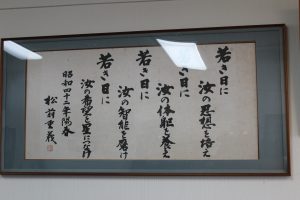 若き日に
汝の思想を培え
若き日に
汝の体躯を養え
若き日に
汝の智能を磨け
若き日に
汝の希望を星につなげ
昭和四十二年陽春
松前重義